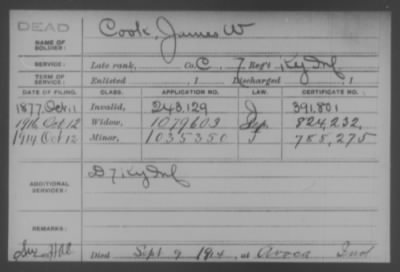 DEAD
NAME OF SOLDIER: Cook, James W
SERVICE: Late rank, Co. C, 7 Reg't Ky Inf
TERM OF SERVICE: Enlisted , 1 Discharged , 1
DATE OF FILING. CLASS. APPLICATION NO. LAW. CERTIFICATE NO.
1877, Oct. 11 Invalid, 243,129 J 391,801
1916 Oct 12 Widow, 1079603 Sep. 824,232
1914 Oct 12 Minor, 1035350 788,275
ADDITIONAL SERVICES: D 7 Ky Inf
REMARKS:
Died Sept 9 1914, at Ind